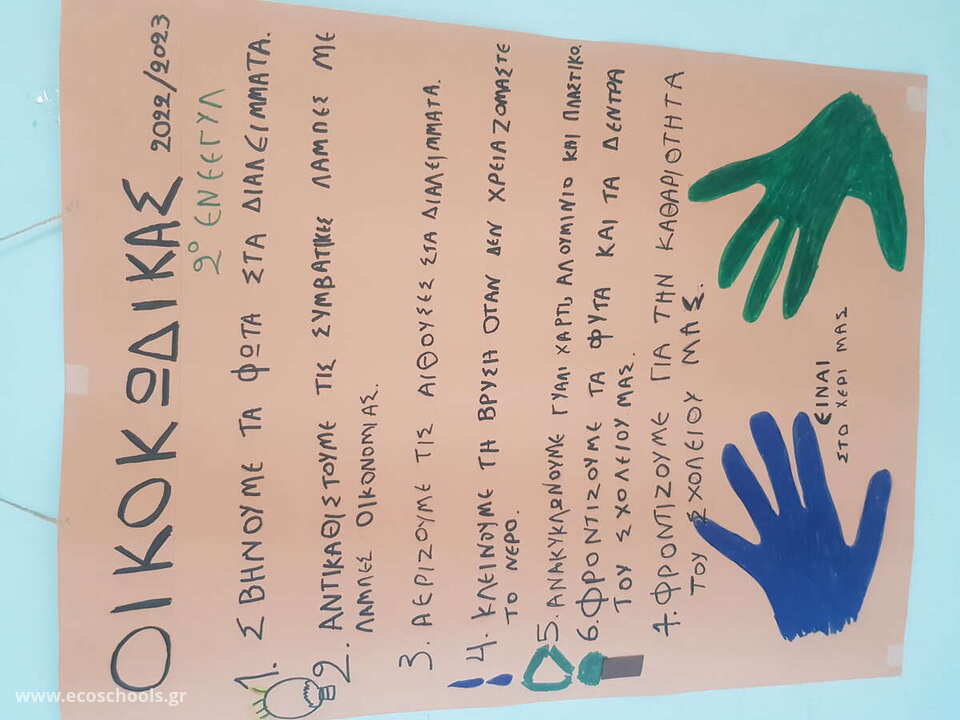 ΟΙΚΟΚΩΔΙΚΑΣ 2022/2023
2ο ΕΝΕΕΓΥΛ
1. ΣΒΗΝΟΥΜΕ ΤΑ ΦΩΤΑ ΣΤΑ ΔΙΑΛΕΙΜΜΑΤΑ.
2. ΑΝΤΙΚΑΘΙΣΤΟΥΜΕ ΤΙΣ ΣΥΜΒΑΤΙΚΕΣ ΛΑΜΠΕΣ ΜΕ
ΛΑΜΠΕΣ ΟΙΚΟΝΟΜΙΑΣ.
3. ΑΕΡΙΖΟΥΜΕ ΤΙΣ ΑΙΘΟΥΣΕΣ ΣΤΑ ΔΙΑΛΕΙΜΜΑΤΑ.
4. ΚΛΕΙΝΟΥΜΕ ΤΗ ΒΡΥΣΗ ΟΤΑΝ ΔΕΝ ΧΡΕΙΑΖΟΜΑΣΤΕ
ΤΟ ΝΕΡΟ.
5. ΑΝΑΚΥΚΛΩΝΟΥΜΕ ΓΥΑΛΙ ΧΑΡΤΙ, ΑΛΟΥΜΙΝΙΟ ΚΑΙ ΠΛΑΣΤΙΚΟ.
6. ΦΡΟΝΤΙΖΟΥΜΕ ΤΑ ΦΥΤΑ ΚΑΙ ΤΑ ΔΕΝΤΡΑ
ΤΟΥ ΣΧΟΛΕΙΟΥ ΜΑΣ.
7. ΦΡΟΝΤΙΖΟΥΜΕ ΓΙΑ ΤΗΝ ΚΑΘΑΡΙΟΤΗΤΑ
ΤΟΥ ΣΧΟΛΕΙΟΥ ΜΑΣ.
ΕΙΝΑΙ
ΣΤΟ ΧΕΡΙ ΜΑΣ
www.ecoschools.gr